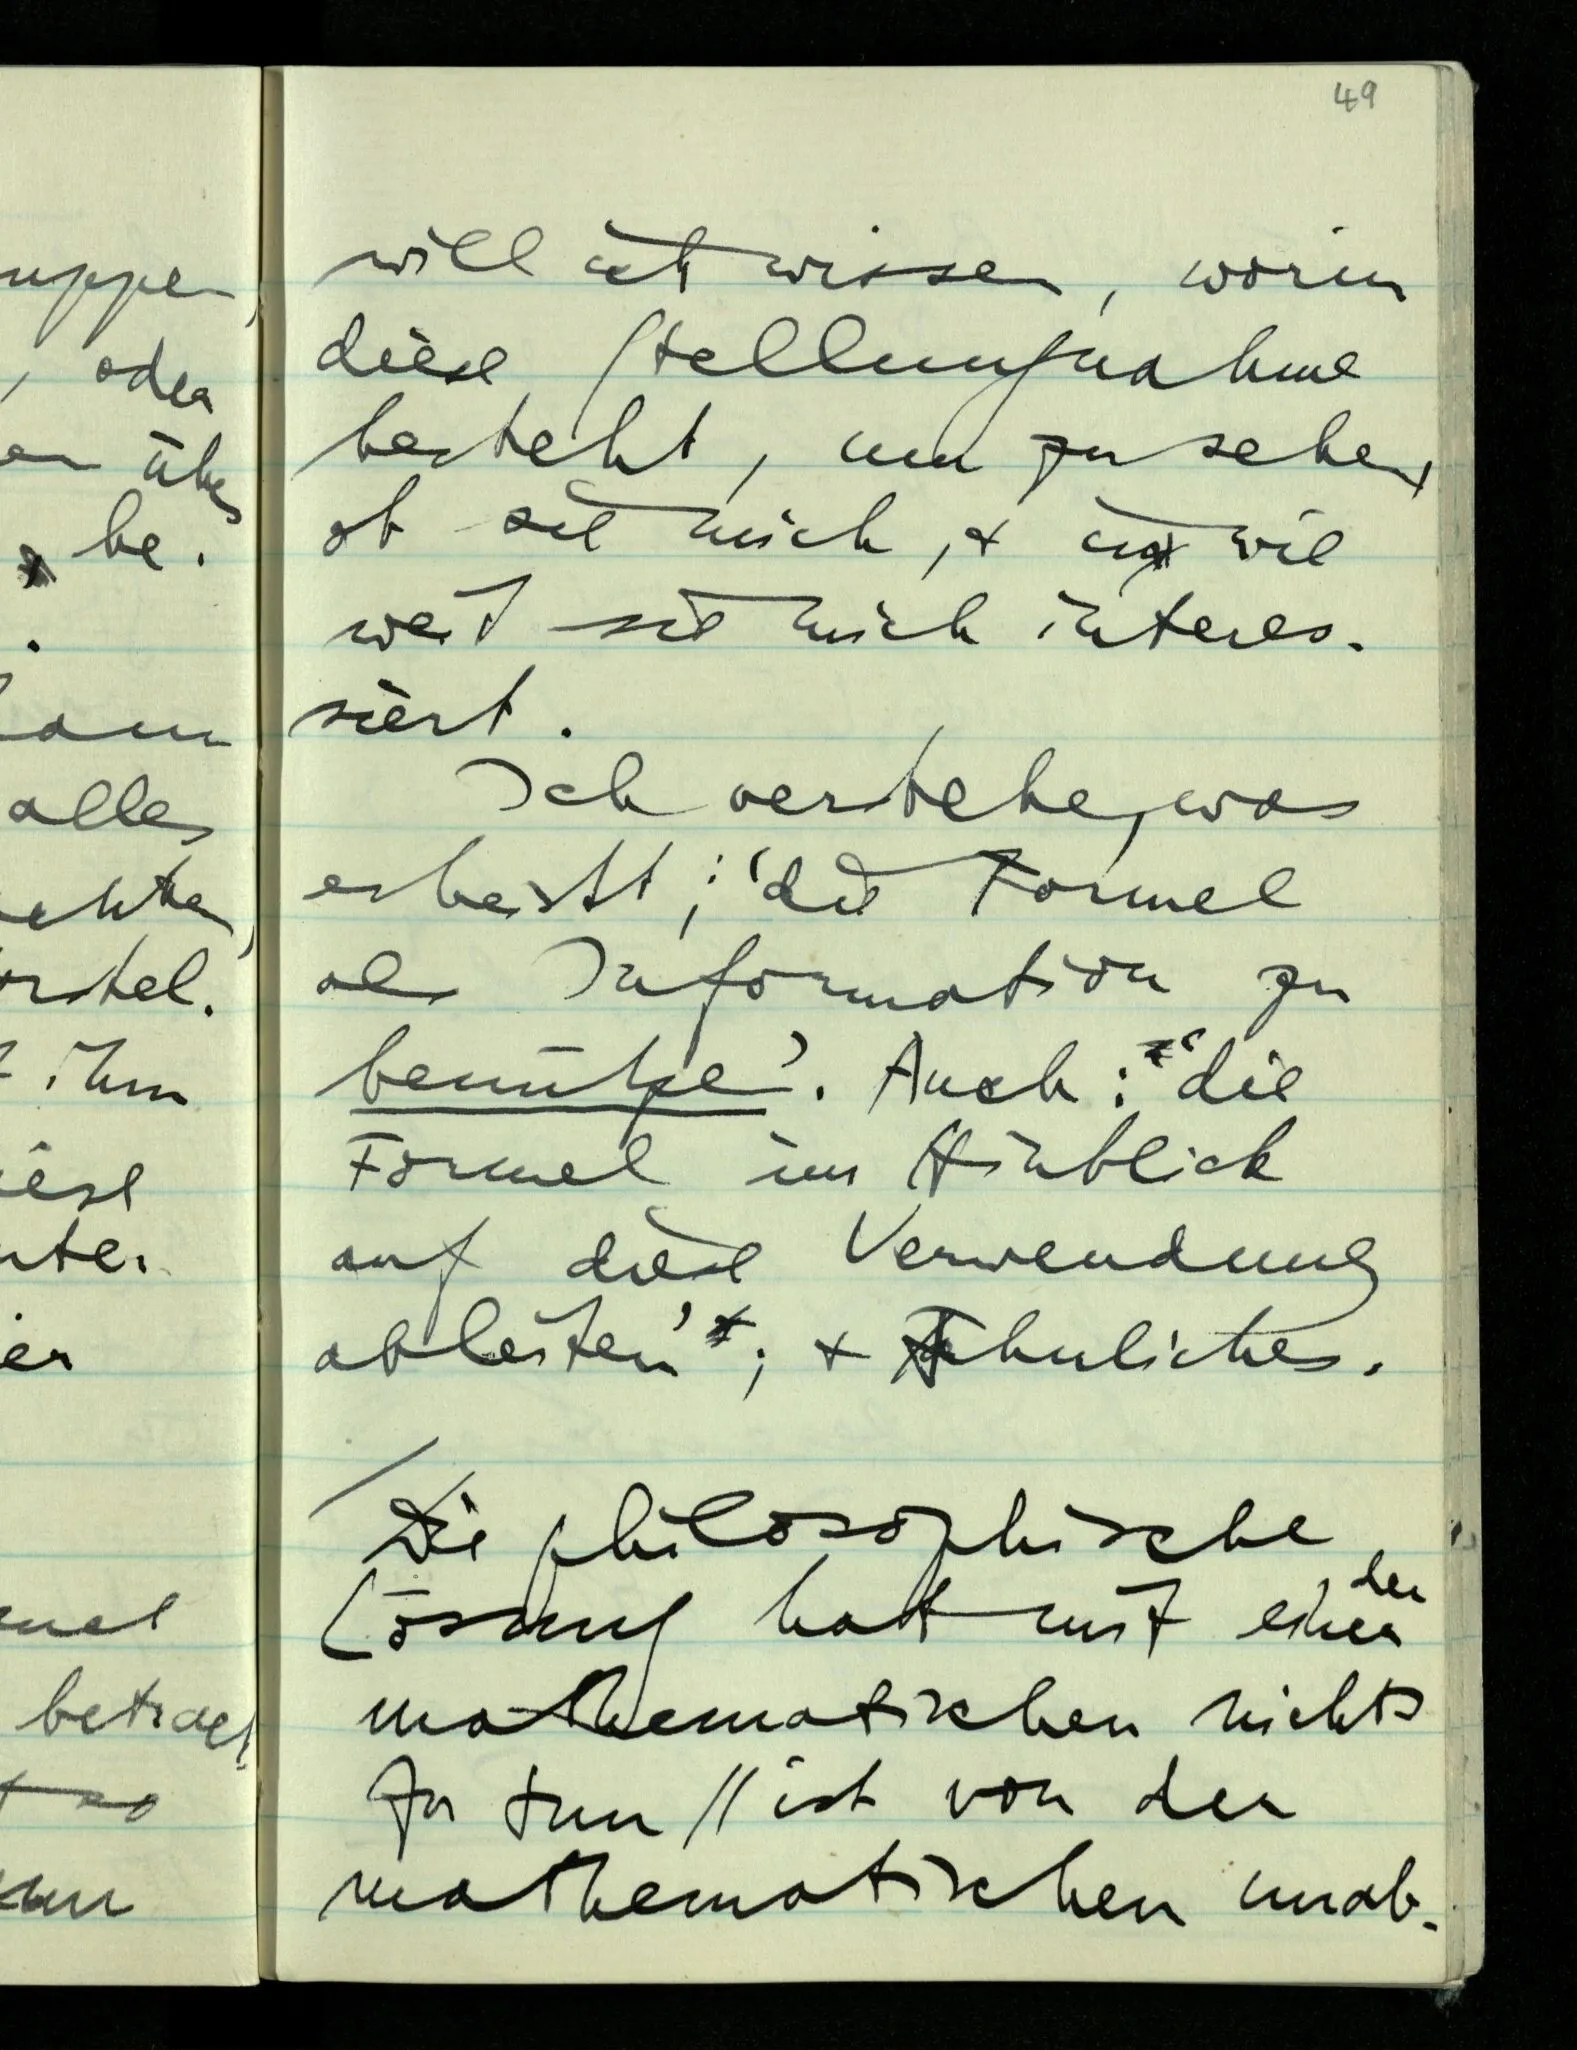 49
uppen,
, oder
en über
be.
.
kann
alles
achten,
orstel.
t ihm
iese
nter.
er
mel
betrach
will ich wissen, worin
diese Stellungnahme
besteht, um zu sehen,
ob sie mich, & in wie
weit sie mich interes-
siert.
Ich verstehe, was
es heißt: ‘die Formel
als Information zu
benütze’. Auch: ‘die
Formel im Hinblick
auf diese Verwendung
ableiten’; & Ähnliches.
/ Die philosophische
Lösung hat mit einer der
mathematischen nichts
zu tun // ist von der
mathematischen unab-